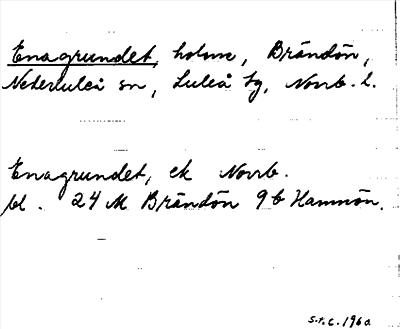 Enagrundet, holme, Brändön,
Nederluleå sn, Luleå tg, Norrb. l.
Enagrundet, ek Norrb.
bl. 24 M Brändön 9 b Hamnön.
s.t.c. 1960